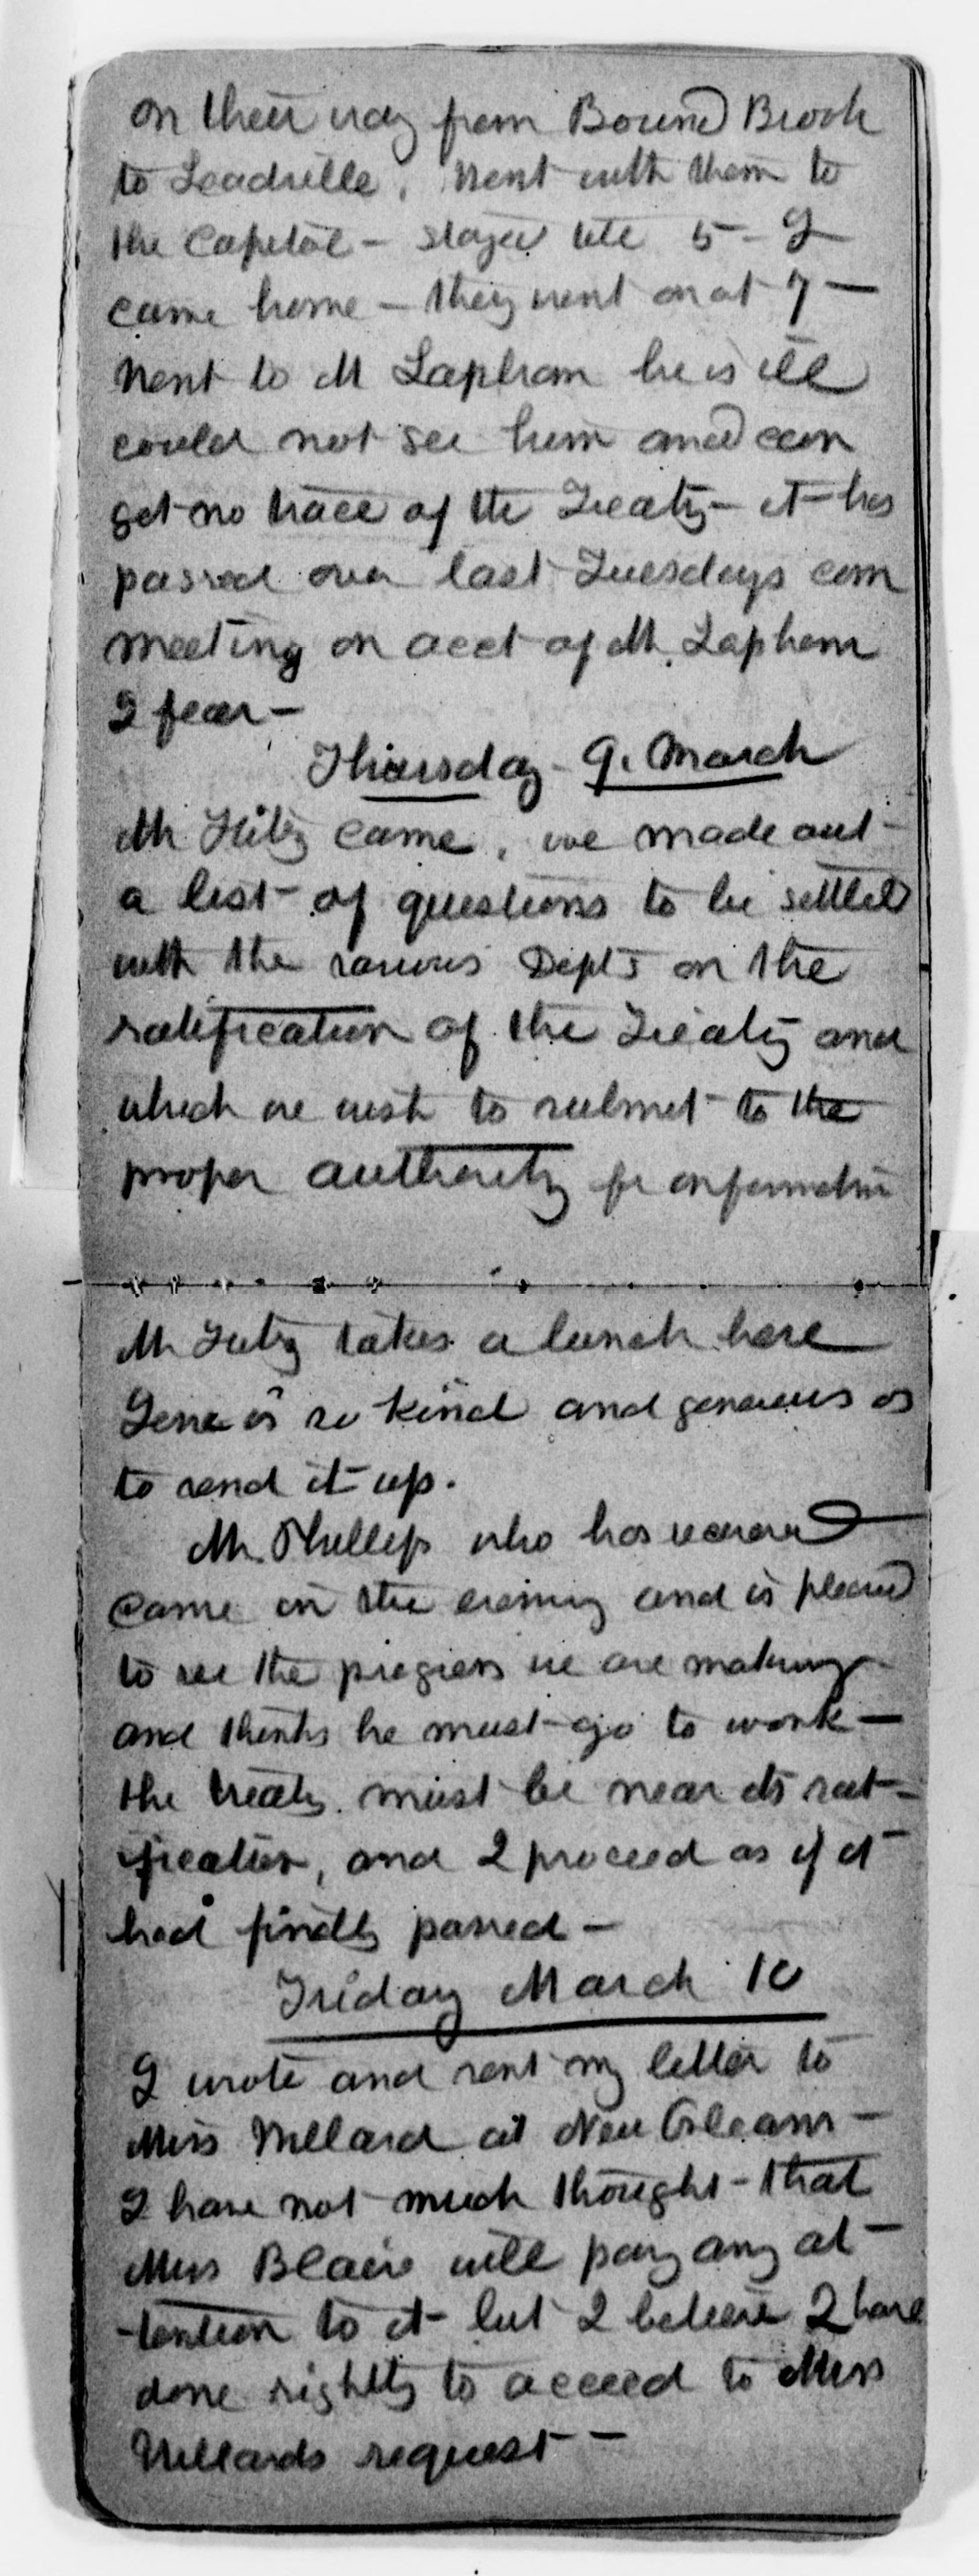 on their way from Bound Brook
to Leadville, went with them to
the Capitol - stayed till 5 - I
came home - they went on at 7 -
Went to Mr Lapham he is ill
could not see him and can
get no trace of the Treaty - it has
passed over last Tuesdays com
meeting on acct of Mr. Lapham
I fear -
Thursday - 9. March
Mr Hitz came, we made out
a list of questions to be settled
with the various Depts on the
ratification of the Treaty and
which we wish to submit to the
proper authority for information
Mr Hitz takes a lunch here
is so kind and generous as
to send it up.
Mr. Phillips who has
came in the evening and is pleased
to see the progress we are making
and thinks he must go to work -
the treaty must be near its rat-
ification, and I proceed as if it
had finally passed -
Friday March 10
I wrote and sent my letter to
Miss Willard at New Orleans -
I have not much thought - that
Miss Blair will pay any at-
-tention to it but I believe I have
done rightly to acceed to Miss
Willards request -